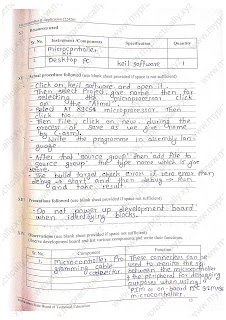 Resources used
Sr. No. Instrument /Components Specification Quantity
1. microcontroller kit
2. Desktop PC keil software 1
Actual procedure followed (use blank sheet provided if space is not sufficient)
- Click on keil software and open it.
- Then select Project give name then for
selecting the microprocessor click
on the "Atmel".
- Select At 89C51 microprocessor. Then
click No.
- Then File, click on new. during the
process of save as we give name
by (.asm).
- Write the programme in assembly lan-
guage
- After that source group then add file to
source group the type name which is give
before.
- The build target check error if zero error then
debug → start and then debug → Run
and take result.
Precautions followed (use blank sheet provided if space is not sufficient)
- Do not power up development board
when identifying blocks.
Observations (use blank sheet provided if space is not sufficient)
Observe development board and list various components and write their functions.
Sr. No. Component Function
Microcontroller Pro-
gramming cable
connector.
These connectors can be
used to monitor the
between the microcontroller
& the peripheral for debugging
purposes when using
PIM or on board
microcontroller.
of Technical Education